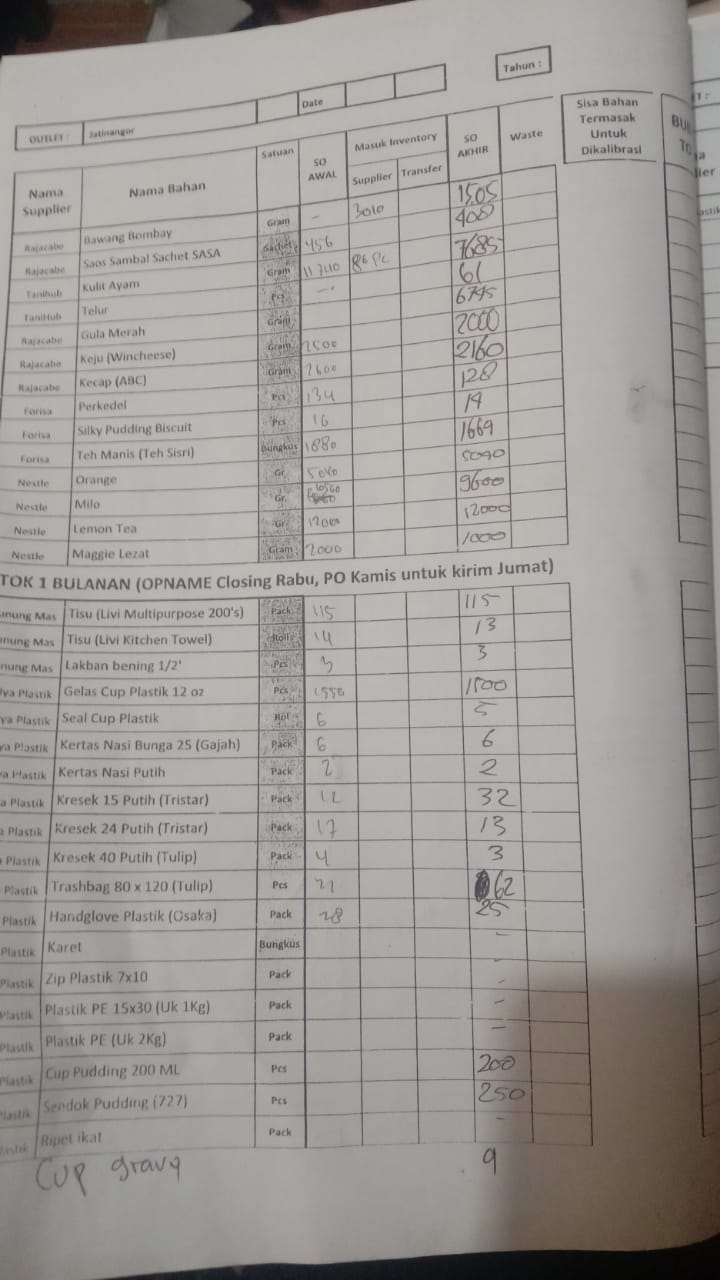 Tahun :
OUTLET : Jatinangor Date
Nama Supplier Nama Bahan Satuan SO AWAL Masuk Inventory Supplier Transfer SO AKHIR Waste Sisa Bahan Termasak Untuk Dikalibrasi
Rajacabe Bawang Bombay Gram - 3010 1505
Rajacabe Saos Sambal Sachet SASA Sachet 456 408
Tanihub Kulit Ayam Gram 11740 86 Pc 7685
TaniHub Telur Pcs - 61
Rajacabe Gula Merah Gram 6745
Rajacabe Keju (Wincheese) Gram 2500 2000
Rajacabe Kecap (ABC) Gram 2600 2160
Forisa Perkedel Pcs 134 128
Forisa Silky Pudding Biscuit Pcs 16 14
Forisa Teh Manis (Teh Sisri) Bungkus 1880 1669
Nestle Orange Gr 5040 5040
Nestle Milo Gr 10560 9600
Nestle Lemon Tea Gr 12000 12000
Nestle Maggie Lezat Gram 2000 1000
TOK 1 BULANAN (OPNAME Closing Rabu, PO Kamis untuk kirim Jumat)
nung Mas Tisu (Livi Multipurpose 200's) Pack 115 115
nung Mas Tisu (Livi Kitchen Towel) Roll 14 13
nung Mas Lakban bening 1/2' Pcs 3 3
ya Plastik Gelas Cup Plastik 12 oz Pcs 1550 1500
ya Plastik Seal Cup Plastik Rol 6 5
ya Plastik Kertas Nasi Bunga 25 (Gajah) Pack 6 6
a Plastik Kertas Nasi Putih Pack 2 2
a Plastik Kresek 15 Putih (Tristar) Pack 12 32
a Plastik Kresek 24 Putih (Tristar) Pack 17 13
Plastik Kresek 40 Putih (Tulip) Pack 4 3
Plastik Trashbag 80 x 120 (Tulip) Pcs 21 62
Plastik Handglove Plastik (Osaka) Pack 28 25
Plastik Karet Bungkus -
Plastik Zip Plastik 7x10 Pack -
Plastik Plastik PE 15x30 (Uk 1Kg) Pack -
Plastik Plastik PE (Uk 2Kg) Pack -
Plastik Cup Pudding 200 ML Pcs 200
Plastik Sendok Pudding (727) Pcs 250
lastik Ripet ikat Pack -
Cup gravy 9